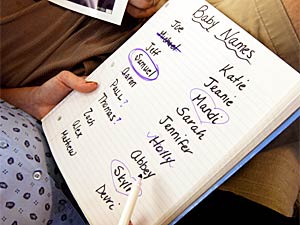 Baby Names
Joe
Michael
Jeff
Samuel
Daron
Paul?
Thomas?
Zach
Alex
Mathew
Katie
Jeanie
Mandi
Sarah
Jennifer
Holly
Abbey
Skyla
Devri